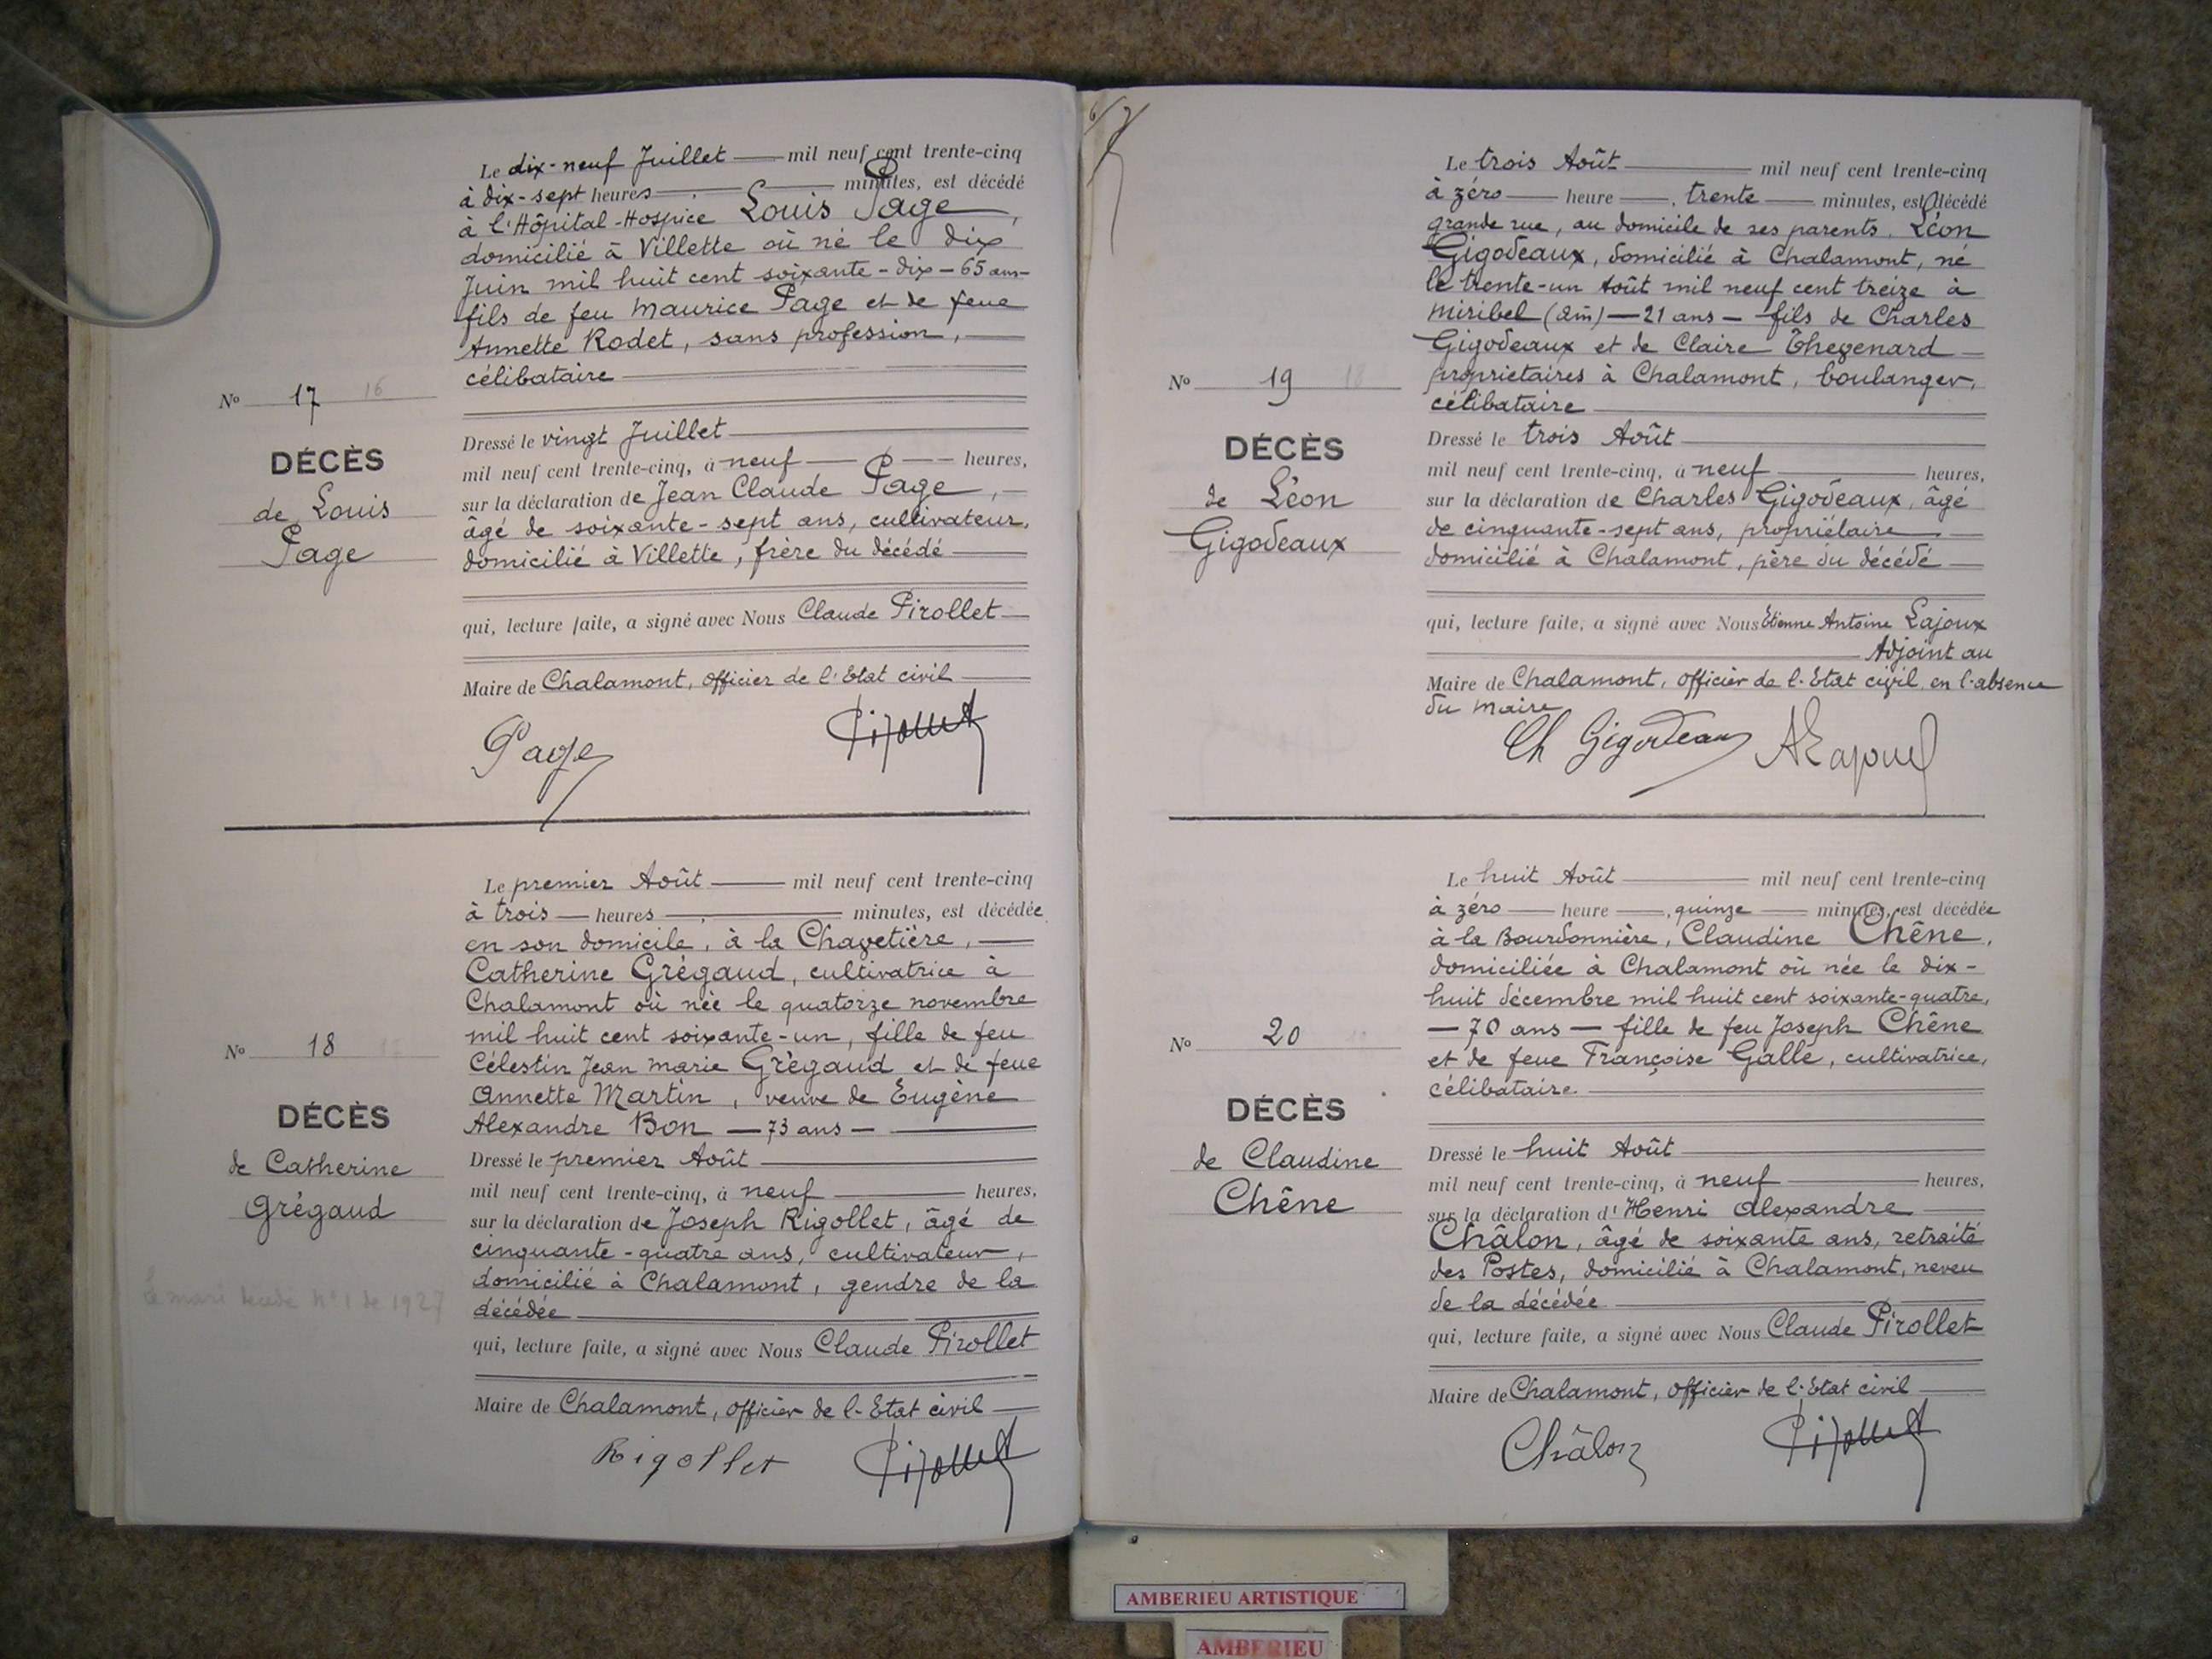 Le dix-neuf Juillet mil neuf cent trente-cinq
à dix-sept heures minutes, est décédé
à l'Hôpital-Hospice Louis Page,
domicilié à Villette où né le dix
Juin mil huit cent soixante-dix - 65 ans -
fils de feu Maurice Page et de feue
Annette Rodet, sans profession,
célibataire
No 17 16
DÉCÈS
de Louis
Page
Dressé le vingt Juillet
mil neuf cent trente-cinq, à neuf heures,
sur la déclaration de Jean Claude Page,
âgé de soixante-sept ans, cultivateur,
domicilié à Villette, frère du décédé
qui, lecture faite, a signé avec Nous Claude Pirollet
Maire de Chalamont, officier de l'Etat civil
Page Pirollet
Le premier Août mil neuf cent trente-cinq
à trois heures minutes, est décédée
en son domicile, à la Chavetière,
Catherine Grégaud, cultivatrice à
Chalamont où née le quatorze novembre
mil huit cent soixante-un, fille de feu
Célestin Jean Marie Grégaud et de feue
Annette Martin, veuve de Eugène
Alexandre Bon - 73 ans -
No 18
DÉCÈS
de Catherine
Grégaud
Le mari décédé n° 1 de 1927
Dressé le premier Août
mil neuf cent trente-cinq, à neuf heures,
sur la déclaration de Joseph Rigollet, âgé de
cinquante-quatre ans, cultivateur,
domicilié à Chalamont, gendre de la
décédée
qui, lecture faite, a signé avec Nous Claude Pirollet
Maire de Chalamont, officier de l'Etat civil
Rigollet Pirollet
Le trois Août mil neuf cent trente-cinq
à zéro heure, trente minutes, est décédé
grande rue, au domicile de ses parents, Léon
Gigodeaux, domicilié à Chalamont, né
le trente-un Août mil neuf cent treize à
Miribel (Ain) - 21 ans - fils de Charles
Gigodeaux et de Claire Thevenard
propriétaires à Chalamont, boulanger,
célibataire
No 19 18
DÉCÈS
de Léon
Gigodeaux
Dressé le trois Août
mil neuf cent trente-cinq, à neuf heures,
sur la déclaration de Charles Gigodeaux, âgé
de cinquante-sept ans, propriétaire
domicilié à Chalamont, père du décédé
qui, lecture faite, a signé avec Nous Etienne Antoine Lajoux
Adjoint au
Maire de Chalamont, officier de l'Etat civil, en l'absence
du Maire
Ch Gigodeaux ALajoux
Le huit Août mil neuf cent trente-cinq
à zéro heure, quinze minutes, est décédée
à la Bourdonnière, Claudine Chêne,
domiciliée à Chalamont où née le dix-
huit décembre mil huit cent soixante-quatre,
- 70 ans - fille de feu Joseph Chêne
et de feue Françoise Galle, cultivatrice,
célibataire.
No 20
DÉCÈS
de Claudine
Chêne
Dressé le huit Août
mil neuf cent trente-cinq, à neuf heures,
sur la déclaration d'Henri Alexandre
Châlon, âgé de soixante ans, retraité
des Postes, domicilié à Chalamont, neveu
de la décédée
qui, lecture faite, a signé avec Nous Claude Pirollet
Maire de Chalamont, officier de l'Etat civil
Châlon Pirollet
AMBERIEU ARTISTIQUE
AMBERIEU